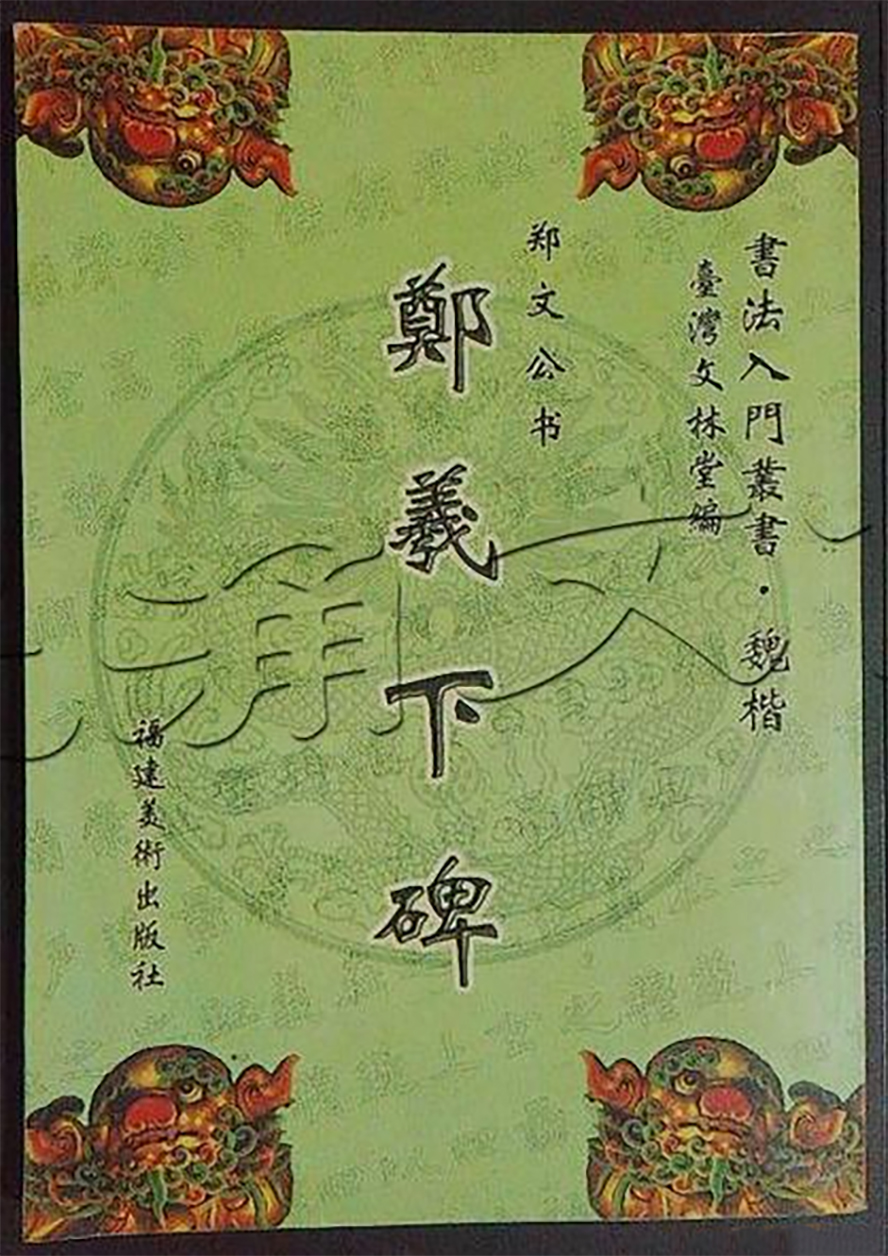 書法入門叢書·魏楷
臺灣文林堂編
郑文公书
鄭羲下碑
福建美術出版社